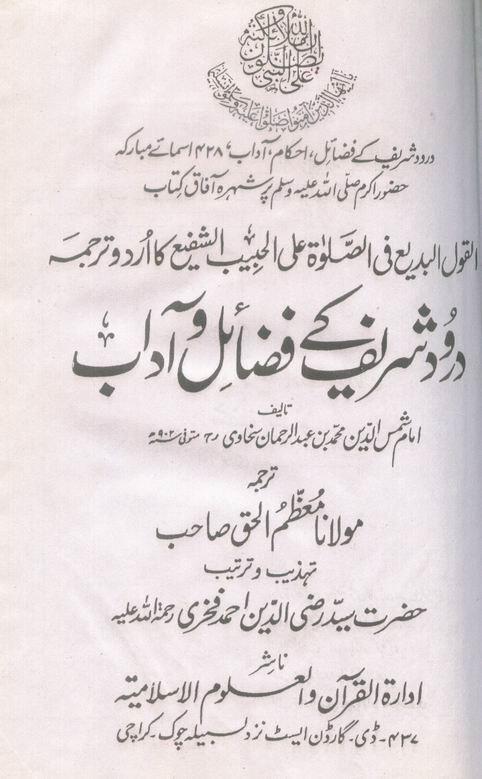 ان اللہ وملئکتہ یصلون علی النبی
یایھا الذین امنوا صلوا علیہ وسلموا تسلیما
درود شریف کے فضائل، احکام، آداب، ۴۲۸ اسمائے مبارکہ
حضور اکرم صلّی اللہ علیہ وسلم پر شہرہ آفاق کتاب
القول البدیع فی الصَّلوٰۃ علی الحبیب الشفیع کا اُردو ترجمہ
درُود شریف کے فضائل و آداب
تالیف
امام شمس الدّین محمد بن عبد الرحمان سخاوی رح متوفی ۹۰۲ھ
ترجمہ
مولانا مُعظّمُ الحق صاحب
تہذیب و ترتیب
حضرت سیّد رضی الدّین احمد فخری رحمۃ اللہ علیہ
ناشر
ادارۃ القرآن والعلوم الاسلامیّہ
۴۳۷-ڈی-گارڈن ایسٹ نزد لسبیلہ چوک-کراچی